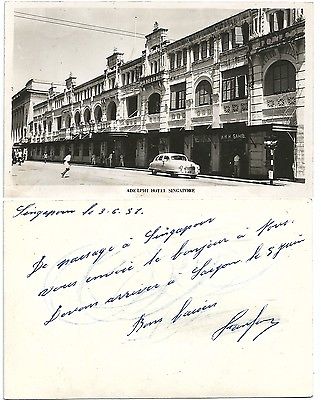 ADELPHI HOTEL SINGAPORE
Singapour le 3.6.57.
De passage à Singapour
vous envoie le bonjour à tous.
Devons arriver à Saïgon le 5 juin
Bons baisers